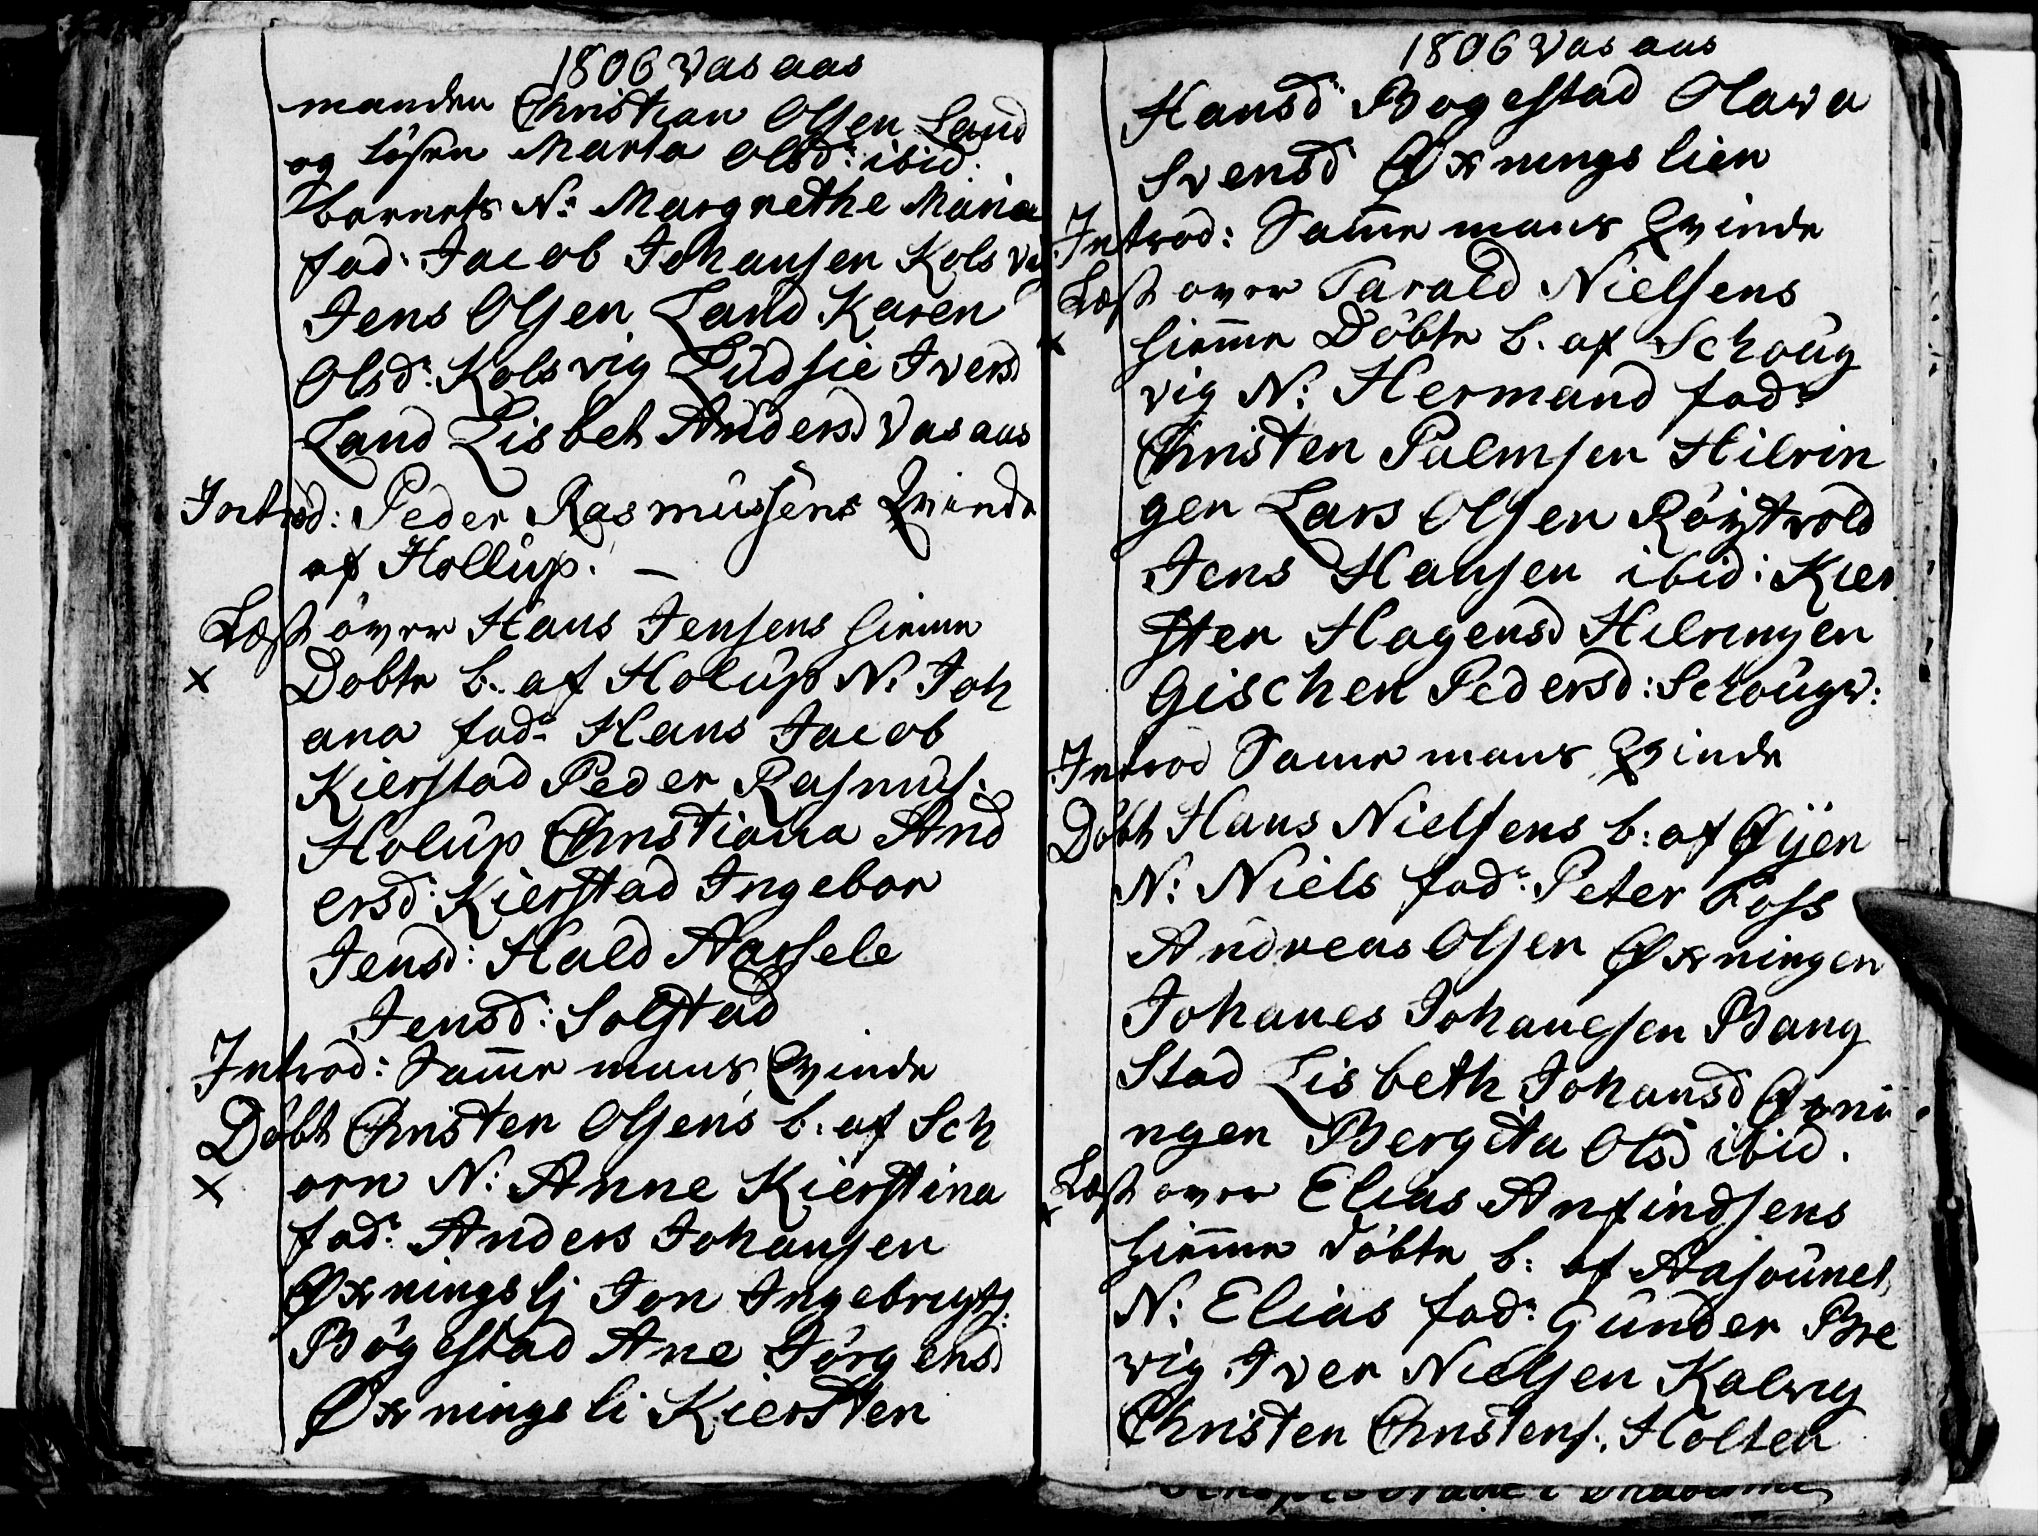 1806 Vas aas
manden Christian Olsen Land
og løsen Marta Olsd: ibid:
barnets N: Margrethe Maria
fad: Jacob Johansen Kolsvig
Jens Olsen Land Karen
Olsd: Kolsvig Ludsie Iversd
Land Lisbet Andersd Vas aas
Introd: Peder Rasmussens Qvinde
af Hollup. —
Læst over Hans Jensens hieme
x Døbte b. af Holup N: Joh
ana fad: Hans Jacob
Kierstad Peder Rasmus:
Holup Christiana And
ersd: Kierstad Ingebor
Jensd: Hald Aassele
Jensd: Solstad
Introd: Samme mans Qvinde
Døbt Christen Olsens b. af Sch
x orn N: Anne Kierstina
fad: Anders Johansen
Øxningslj Jon Ingebrigts:
Bøgestad Ane Jørgensd
Øxningsli Kiersten
1806 Vas aas
Hansd Bogestad Olava
Svensd Øxningslien
Introd: Samme mans Qvinde
Læst over Tarald Nielsens
x hiemme Døbte b. af Schoug
vig N: Hermand fad:
Christen Palmsen Hilrin
gen Lars Olsen Røytvold
Jens Hansen ibid: Kier
sten Hagensd Hilringen
Gischen Pedersd: Schougv:
Introd Same mans Qvinde
Døbt Hans Nielsens b: af Øÿen
N: Niels fad: Peter Foss
Andreas Olsen Øxningen
Johanes Johanesen Bang
Stad Lisbeth Johansd Øxni
ngen Bergita Olsd ibid.
Læst over Elias Anfindsens
x hiemme døbte b: af Aasounet
N: Elias fad: Gunder Bre
vig Iver Nielsen Kalvig
Christen Christens: Holten